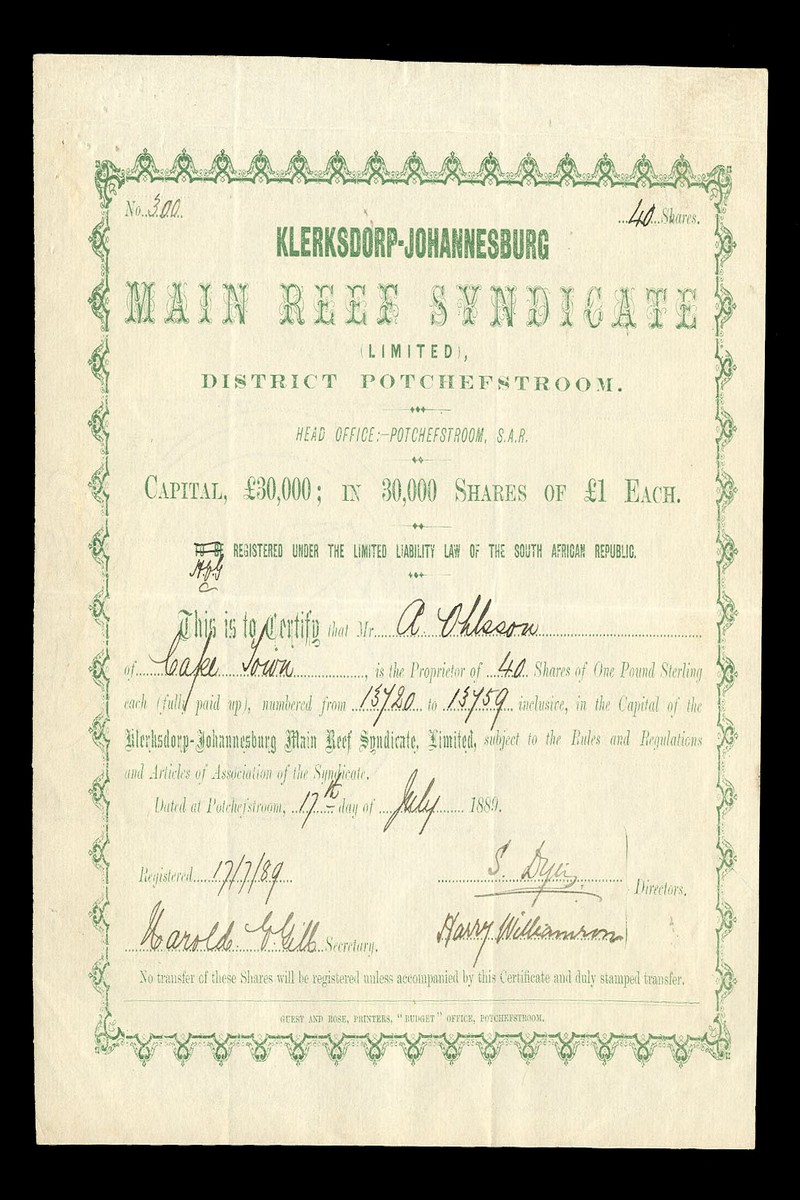 No. 300. 40 Shares.
KLERKSDORP-JOHANNESBURG
MAIN REEF SYNDICATE
(LIMITED),
DISTRICT POTCHEFSTROOM.
HEAD OFFICE:—POTCHEFSTROOM, S.A.R.
CAPITAL, £30,000; IN 30,000 SHARES OF £1 EACH.
TO BE REGISTERED UNDER THE LIMITED LIABILITY LAW OF THE SOUTH AFRICAN REPUBLIC.
This is to Certify that Mr. A Ohlsson
of Cape Town, is the Proprietor of 40 Shares of One Pound Sterling
each (fully paid up), numbered from 13720 to 13759 inclusive, in the Capital of the
Klerksdorp-Johannesburg Main Reef Syndicate, Limited, subject to the Rules and Regulations
and Articles of Association of the Syndicate.
Dated at Potchefstroom, 17th day of July 1889.
Registered 17/7/89 S. Dyer Directors.
Harold V. Gill Secretary. Harry Williamson
No transfer of these Shares will be registered unless accompanied by this Certificate and duly stamped transfer.
GUEST AND ROSE, PRINTERS, "BUDGET" OFFICE, POTCHEFSTROOM.